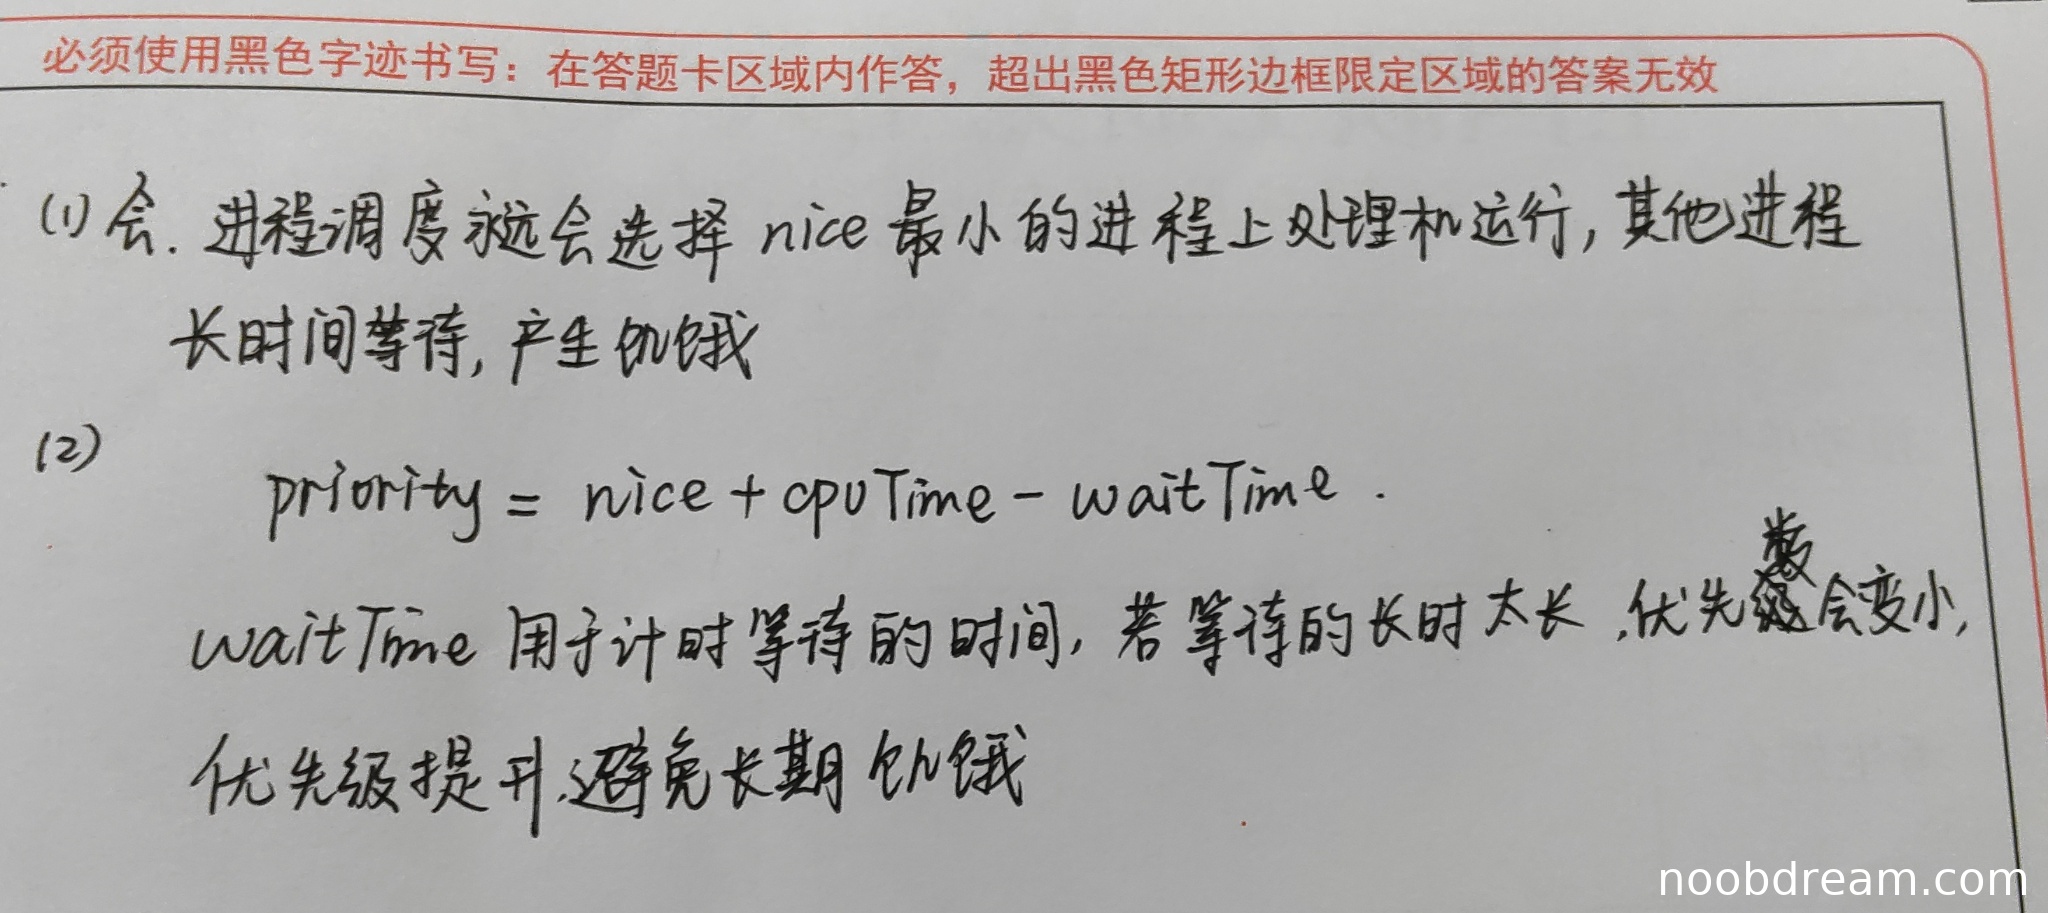 必须使用黑色字迹书写：在答题卡区域内作答，超出黑色矩形边框限定区域的答案无效
(1) 会. 进程调度永远会选择 nice 最小的进程上处理机运行, 其他进程
长时间等待, 产生饥饿
(2)
priority = nice + cpuTime - waitTime .
waitTime 用于计时等待的时间, 若等待的长时太长 , 优先数会变小,
优先级提升, 避免长期饥饿
noobdream.com